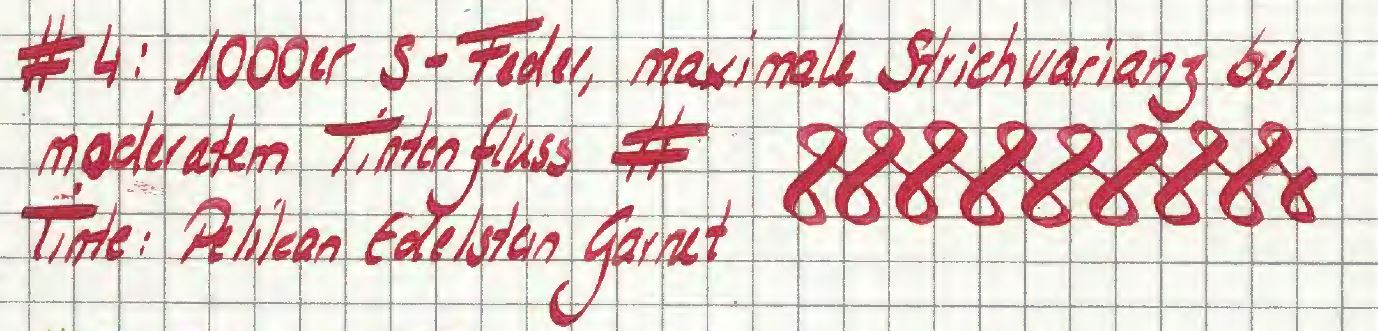 #4: 1000er S-Feder, maximale Strichvarianz bei
moderatem Tintenfluss #
Tinte: Pelikan Edelstein Garnet